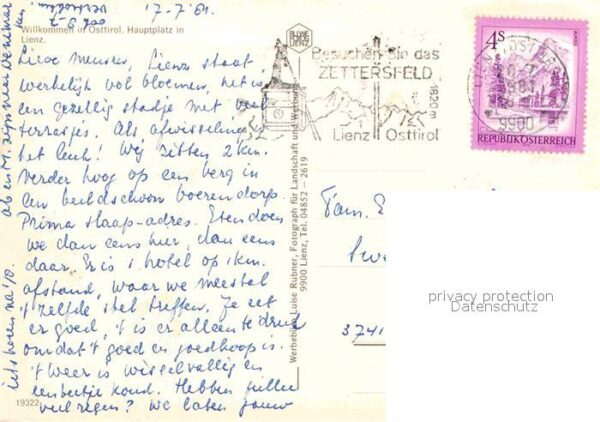 17-7-'81.
Willkommen in Osttirol. Hauptplatz in
Lienz.
Lieve mensen, Lienz staat
werkelijk vol bloemen, het is
een gezellig stadje met veel
terrasjes. Als afwisseling is
het leuk! Wij zitten 2 km.
verder hoog op een berg in
een beeldschoon boerendorp.
Prima slaap-adres. Eten doen
we dan eens hier, dan eens
daar. Er is 1 hotel op 1 km.
afstand, waar we meestal
't zelfde stel treffen. Je eet
er goed, 't is er alleen te druk
omdat 't goed en goedkoop is.
't Weer is wisselvallig en
een beetje koud. Hebben jullie
veel regen? We laten jouw
iets horen na
19322
Werbebild Luise Rubner, Fotograph für Landschaft und Werbung
9900 Lienz, Tel. 04852 - 2619
Besuchen Sie das
ZETTERSFELD
1820 m
Lienz Osttirol
9900
4S
REPUBLIK ÖSTERREICH
Fam.
3741
privacy protection
Datenschutz